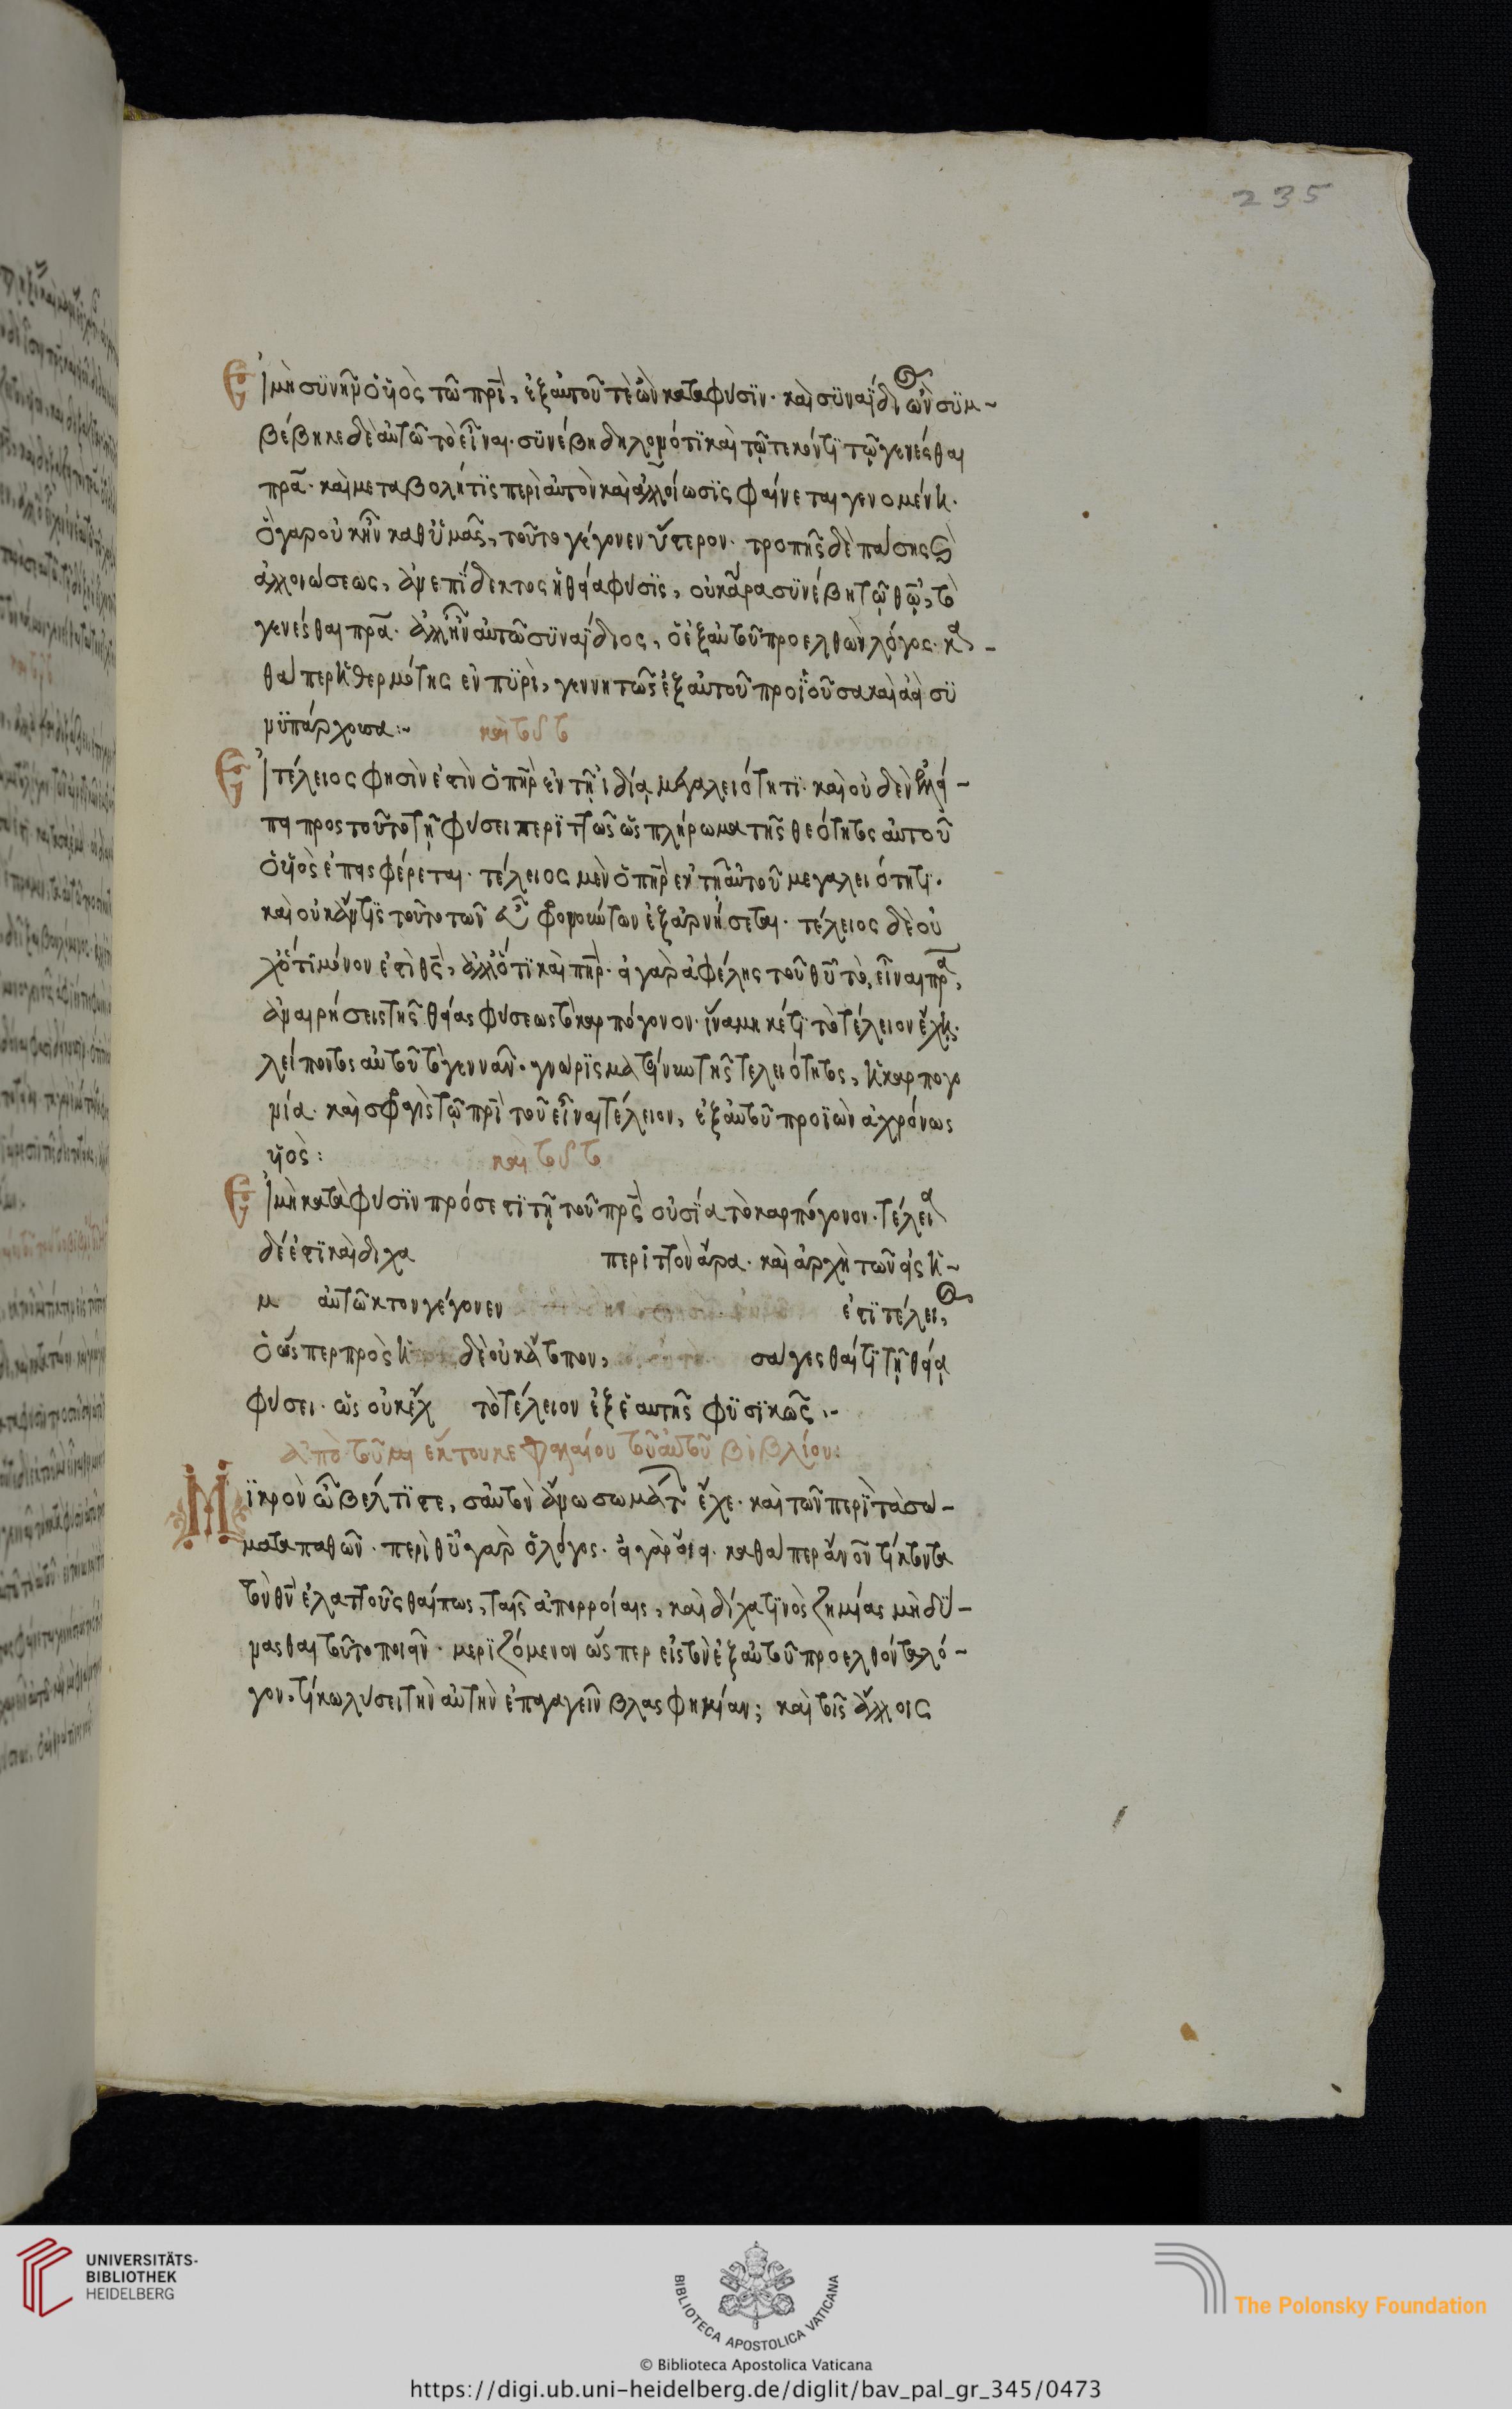 235
Εἰ μὴ συνῆν ὁ υἱὸς τῶ πρὶ, ἐξ αὐτοῦ τὲ ὢν κατα φύσιν· καὶ συναΐδιος ὢν συμ-
βέβηκε δὲ αὐτῶ τὸ εἶναι· συνέβη δηλονότι καὶ τῷ τεκόντι τῷ γενέσθαι
πρα· καὶ μεταβολή τις περὶ αὐτὸν καὶ ἀλλοίωσις φαίνεται γενομένη.
ὃ γαρ οὐκ ἦν καθ ὑμᾶς, τοῦτο γέγονεν ὕστερον· τροπῆς δὲ πάσης καὶ
ἀλλοιώσεως, ἀνεπίδεκτος ἡ θεία φύσις, οὐκ ἄρα συνέβη τῷ θῷ, τὸ
γενέσθαι πρα· ἀλλ' ἦν αὐτῶ συναΐδιος, ὁ ἐξ αὐτοῦ προελθὼν λόγος· κα-
θάπερ ἡ θερμότης ἐν πυρὶ, γεννητῶς ἐξ αὐτοῦ προϊοῦσα καὶ ἀεὶ συ
νυπάρχουσα:~ καὶ τοῦτο
Εἰ τέλειος φησὶν ἐστὶν ὁ πὴρ ἐν τῇ ἰδίᾳ μεγαλειότητι· καὶ οὐδὲν ἐλλεί-
πει προς τοῦτο τῇ φύσει περιττῶς ὡς πλήρωμα τῆς θεότητος αὐτοῦ
ὁ υἱὸς ἐπεισφέρεται· τέλειος μὲν ὁ πὴρ ἐν τῇ αὐτοῦ μεγαλειότητι.
καὶ οὐκ ἄν τις τοῦτο τῶν εὖ φρονούντων ἐξαρνήσεται· τέλειος δὲ οὐ
χ ὅτι μόνον ἐστὶ θς, ἀλλ' ὅτι καὶ πηρ· εἰ γαρ ἀφέλης τοῦ θῦ τὸ, εἶναι πρα,
ἀναιρήσεις τῆς θείας φύσεως τὸ καρπόγονον· ἵνα μηκέτι τὸ τέλειον ἔχῃ.
λείποντος αὐτοῦ τὸ γεννᾶν· γνώρισμα τοίνυν τῆς τελειότητος, ἡ καρπογο
νία· καὶ σφραγὶς τῷ πρὶ τοῦ εἶναι τέλειον, ἐξ αὐτοῦ προϊὼν ἀχρόνως
υἱὸς: καὶ τοῦτο
Εἰ μὴ κατὰ φύσιν πρόσεστι τῇ τοῦ πρς οὐσία τὸ καρπόγονον. τέλεια
δέ ἐστι καὶ δίχα περιττὸν ἄρα· καὶ ἀρχὴ τῶν εἰς ἡ-
μ αὐτῶ κτον γέγονεν ἐστὶ τέλειος,
ὃ ὥσπερ πρὸς ἡ δὲ οὐκ ἄτοπον, σάγεσθαί τι τῇ θείᾳ
φύσει· ὡς οὐκ ἔχ τὸ τέλειον ἐξ ἑαυτῆς φυσικῶς:~
ἀπὸ τοῦ και ἕκτου κεφαλαίου τοῦ αὐτοῦ βιβλίου:
Μικρὸν ὦ βέλτιστε, σαυτὸν ἄνω σωμάτων ἔχε· καὶ τῶν περὶ τὰ σώ-
ματα παθῶν· περὶ θῦ γαρ ὁ λόγος· εἰ γὰρ οἴει· καθάπερ ἂν οὖν τίκτοντα
τὸν θν ἐλαττοῦσθαί πως, ταῖς ἀπορροίαις, καὶ δίχα τινὸς ζημίας μὴ δύ-
νασθαι τοῦτο ποιεῖν· μεριζόμενον ὥσπερ εἰς τὸν ἐξ αὐτοῦ προελθόντα λό-
γον, τί κωλύσει τὴν αὐτὴν ἐπαγαγεῖν βλασφημίαν; καὶ τοῖς ἄλλοις
UNIVERSITÄTS-
BIBLIOTHEK
HEIDELBERG
BIBLIOTECA APOSTOLICA VATICANA
The Polonsky Foundation
© Biblioteca Apostolica Vaticana
https://digi.ub.uni-heidelberg.de/diglit/bav_pal_gr_345/0473